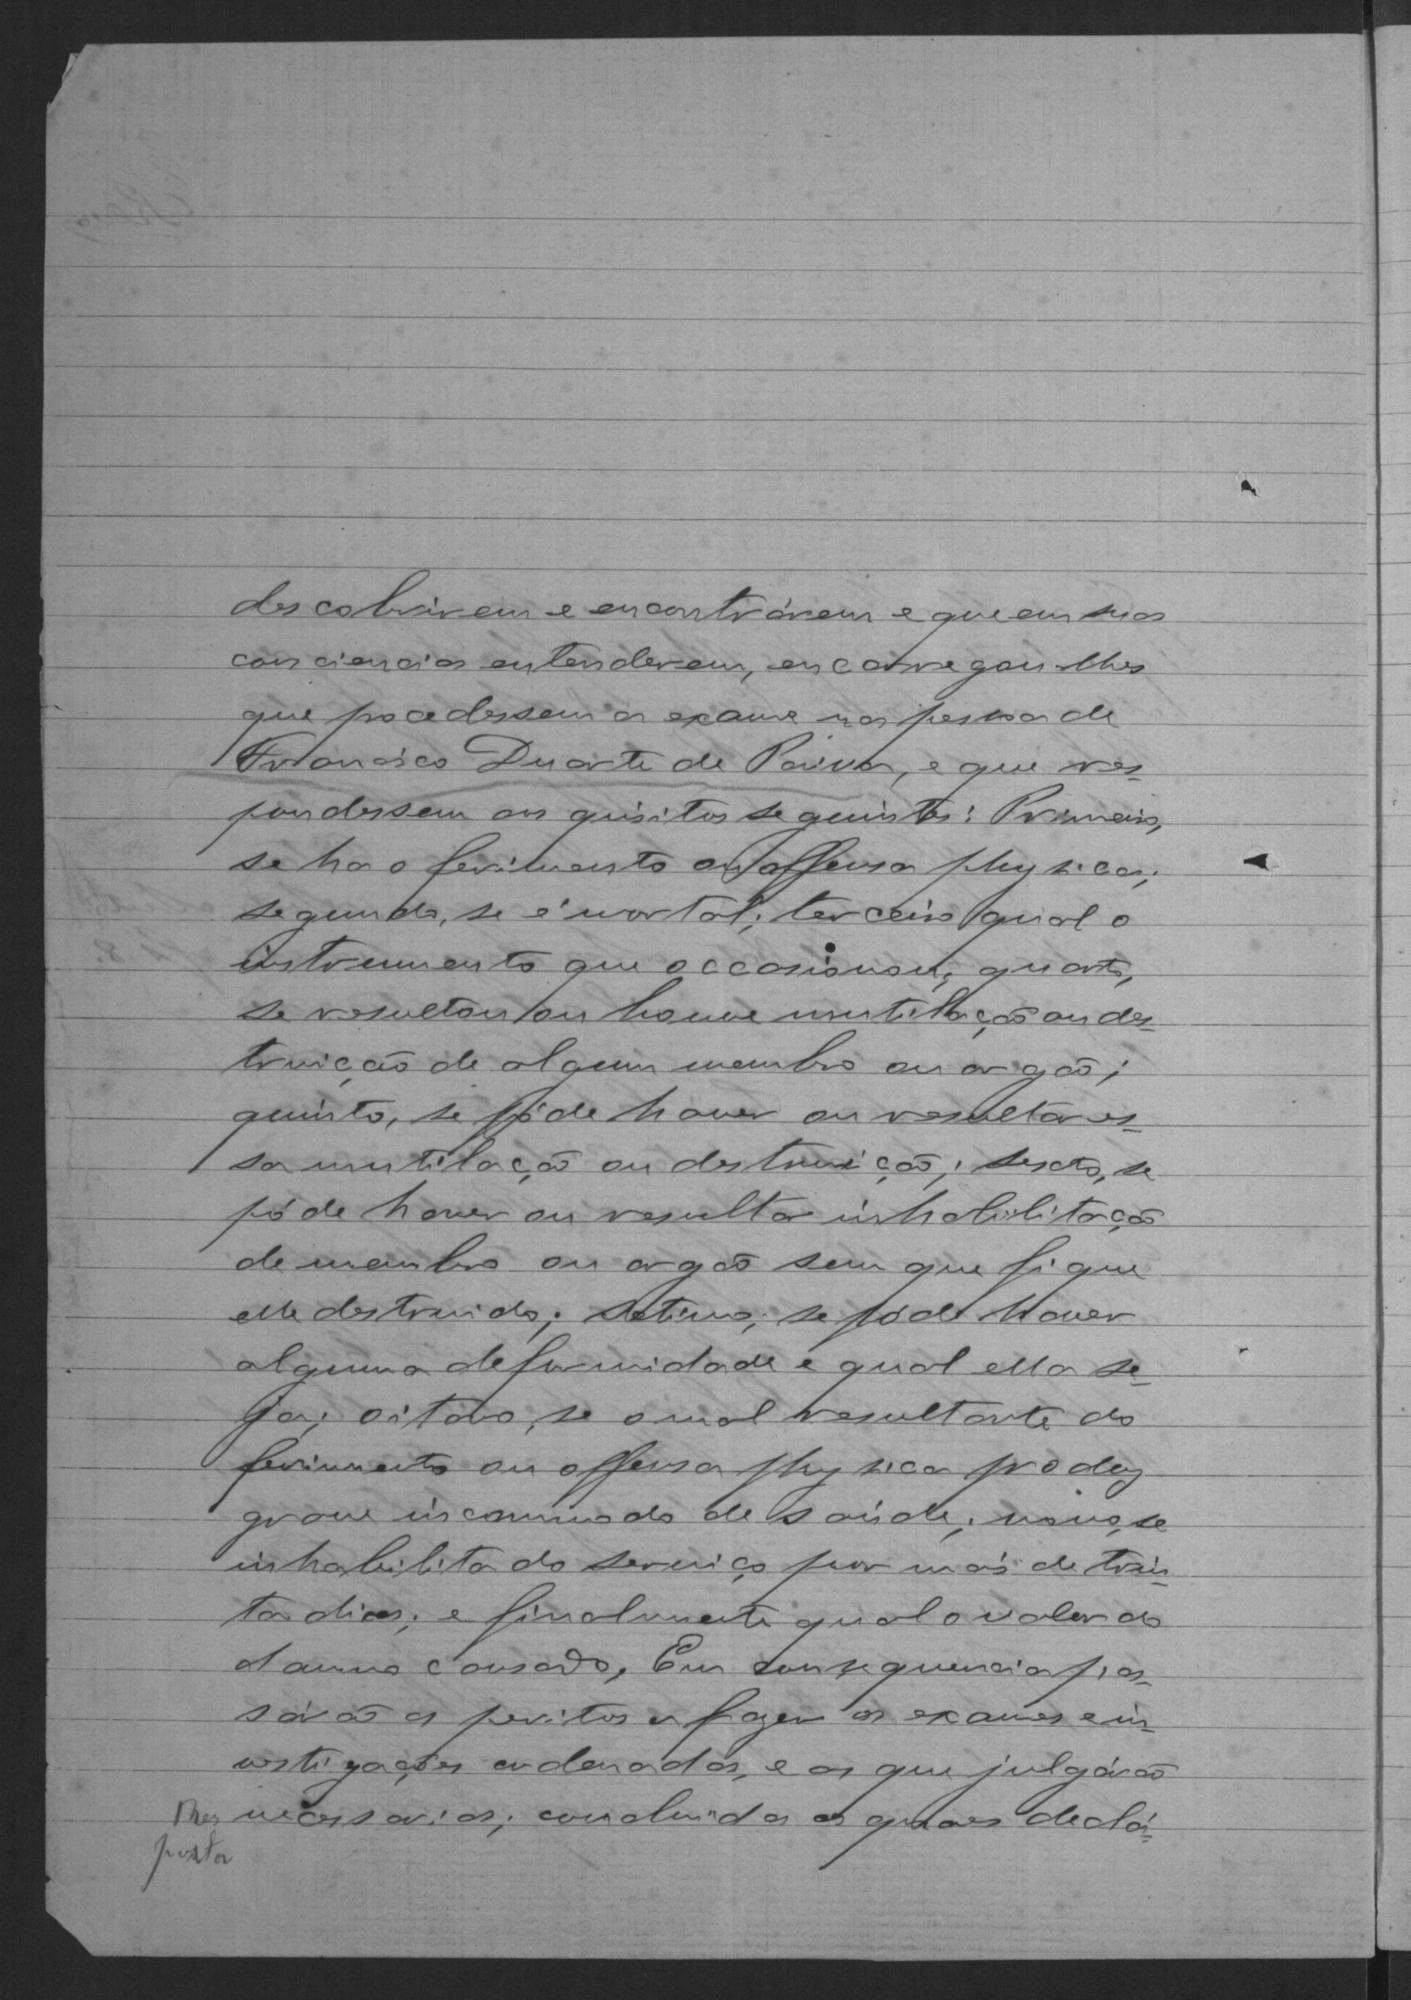 descobrirem e encontrárem e que em suas
consciencias entenderem, encarregou-lhes
que procedessem a exame na pessoa de
Francisco Duarte de Paiva, e que res-
pondessem aos quisitos seguintes: Primeiro,
se ha o ferimento ou offensa physica;
segundo, se é mortal; terceiro qual o
instrumento que occasionou; quarto,
se resultou ou houve mutilação ou des-
truição de algum membro ou orgão;
quinto, se póde haver ou resultar es-
sa mutilação ou destruição; sexto, se
póde haver ou resultar inhabilitação
de membro ou orgão sem que fique
elle destruido; setimo; se póde haver
alguma deformidade e qual ella se-
ja; oitavo, se o mal resultante do
ferimento ou offensa physica produz
grave incommodo de saúde; nono, se
inhabilita do serviço por mais de trin-
ta dias; e finalmente qual o valor do
damno causado. Em consequencia pas-
sárão os peritos a fazer os exames e in-
vestigações ordenadas, e as que julgárão
necessarias; concluidas as quaes declá-
Res
posta